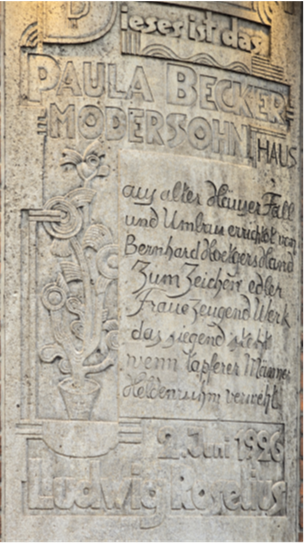 Dieses ist das
PAULA BECKER-
MODERSOHN HAUS
aus alter Häuser Fall
und Umbau errichtet von
Bernhard Hoetgers Hand
Zum Zeichen edler
Frau zeugend Werk
das siegend steht
wenn tapferer Männer
Heldenruhm verweht
2. Juni 1926
Ludwig Roselius